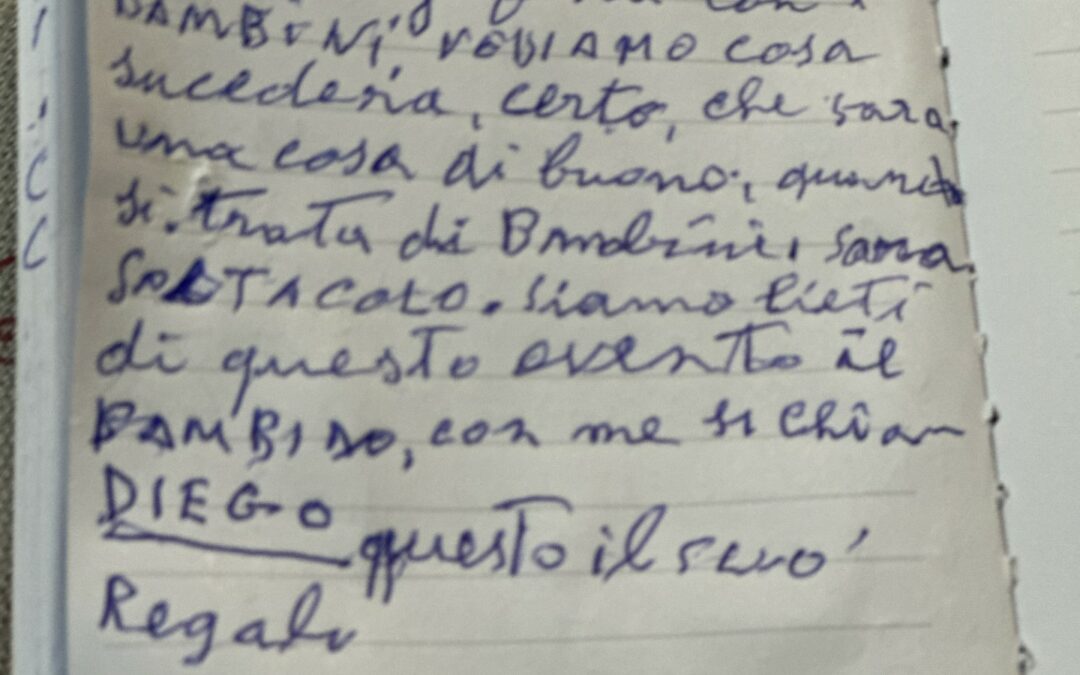 BAMBINI, VEDIAMO cosa
sucederia, certo, che sara,
una cosa di buono, quando
si. trata di Bambini, sara
SPETACOLO. siamo lieti
di questo evento il
BAMBINO, con me si chiam
DIEGO
questo il suo
Regalo